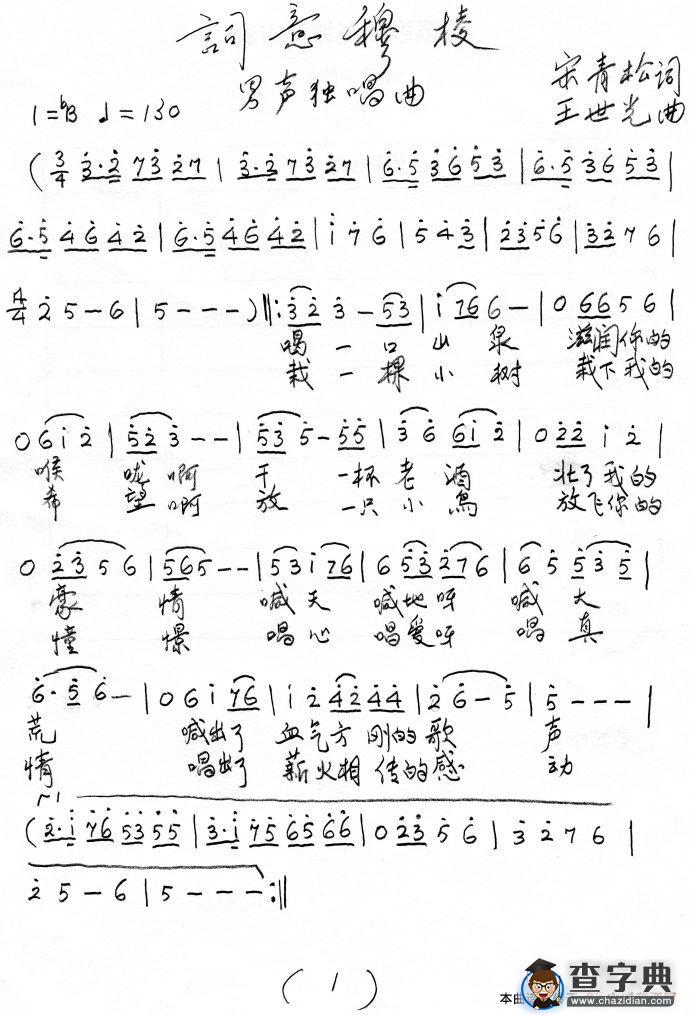 詞意穆棱
男声独唱曲
宋青松词
1=♭B ♩=130
王世光曲
(3/4 3·2 7 3 2 7 | 3·2 7 3 2 7 | 6·5 3 6 5 3 | 6·5 3 6 5 3 |
6·5 4 6 4 2 | 6·5 4 6 4 2 | i 7 6 | 5 4 3 | 2 3 5 6 | 3 2 7 6 |
4/4 2 5 - 6 | 5 - - - ) ‖: 3 2 3 - 5 3 | i 7 6 6 - | 0 6 6 5 6 |
喝一口山泉 滋润你的
栽一棵小树 栽下我的
0 6 i 2 | 5 2 3 - - | 5 3 5 - 5 5 | 3 6 6 i 2 | 0 2 2 i 2 |
喉咙啊 干一杯老酒 壮了我的
希望啊 放一只小鳥 放飞你的
0 2 3 5 6 | 5 6 5 - - | 5 3 i 7 6 | 6 5 3 2 7 6 | 6 5 5 3 5 |
豪情 喊天喊地呀喊大
憧憬 唱心唱爱呀唱真
6·5 6 - | 0 6 i 7 6 | i 2 4 2 4 4 | 2 6 - 5 | 5 - - - |
荒 喊出了血气方刚的歌声
情 唱出了薪火相传的感动
(2·i 7 6 5 3 5 5 | 3·i 7 5 6 5 6 6 | 0 2 3 5 6 | 3 2 7 6 |
2 5 - 6 | 5 - - - :‖
(1)
本曲
查字典
www.chazidian.com